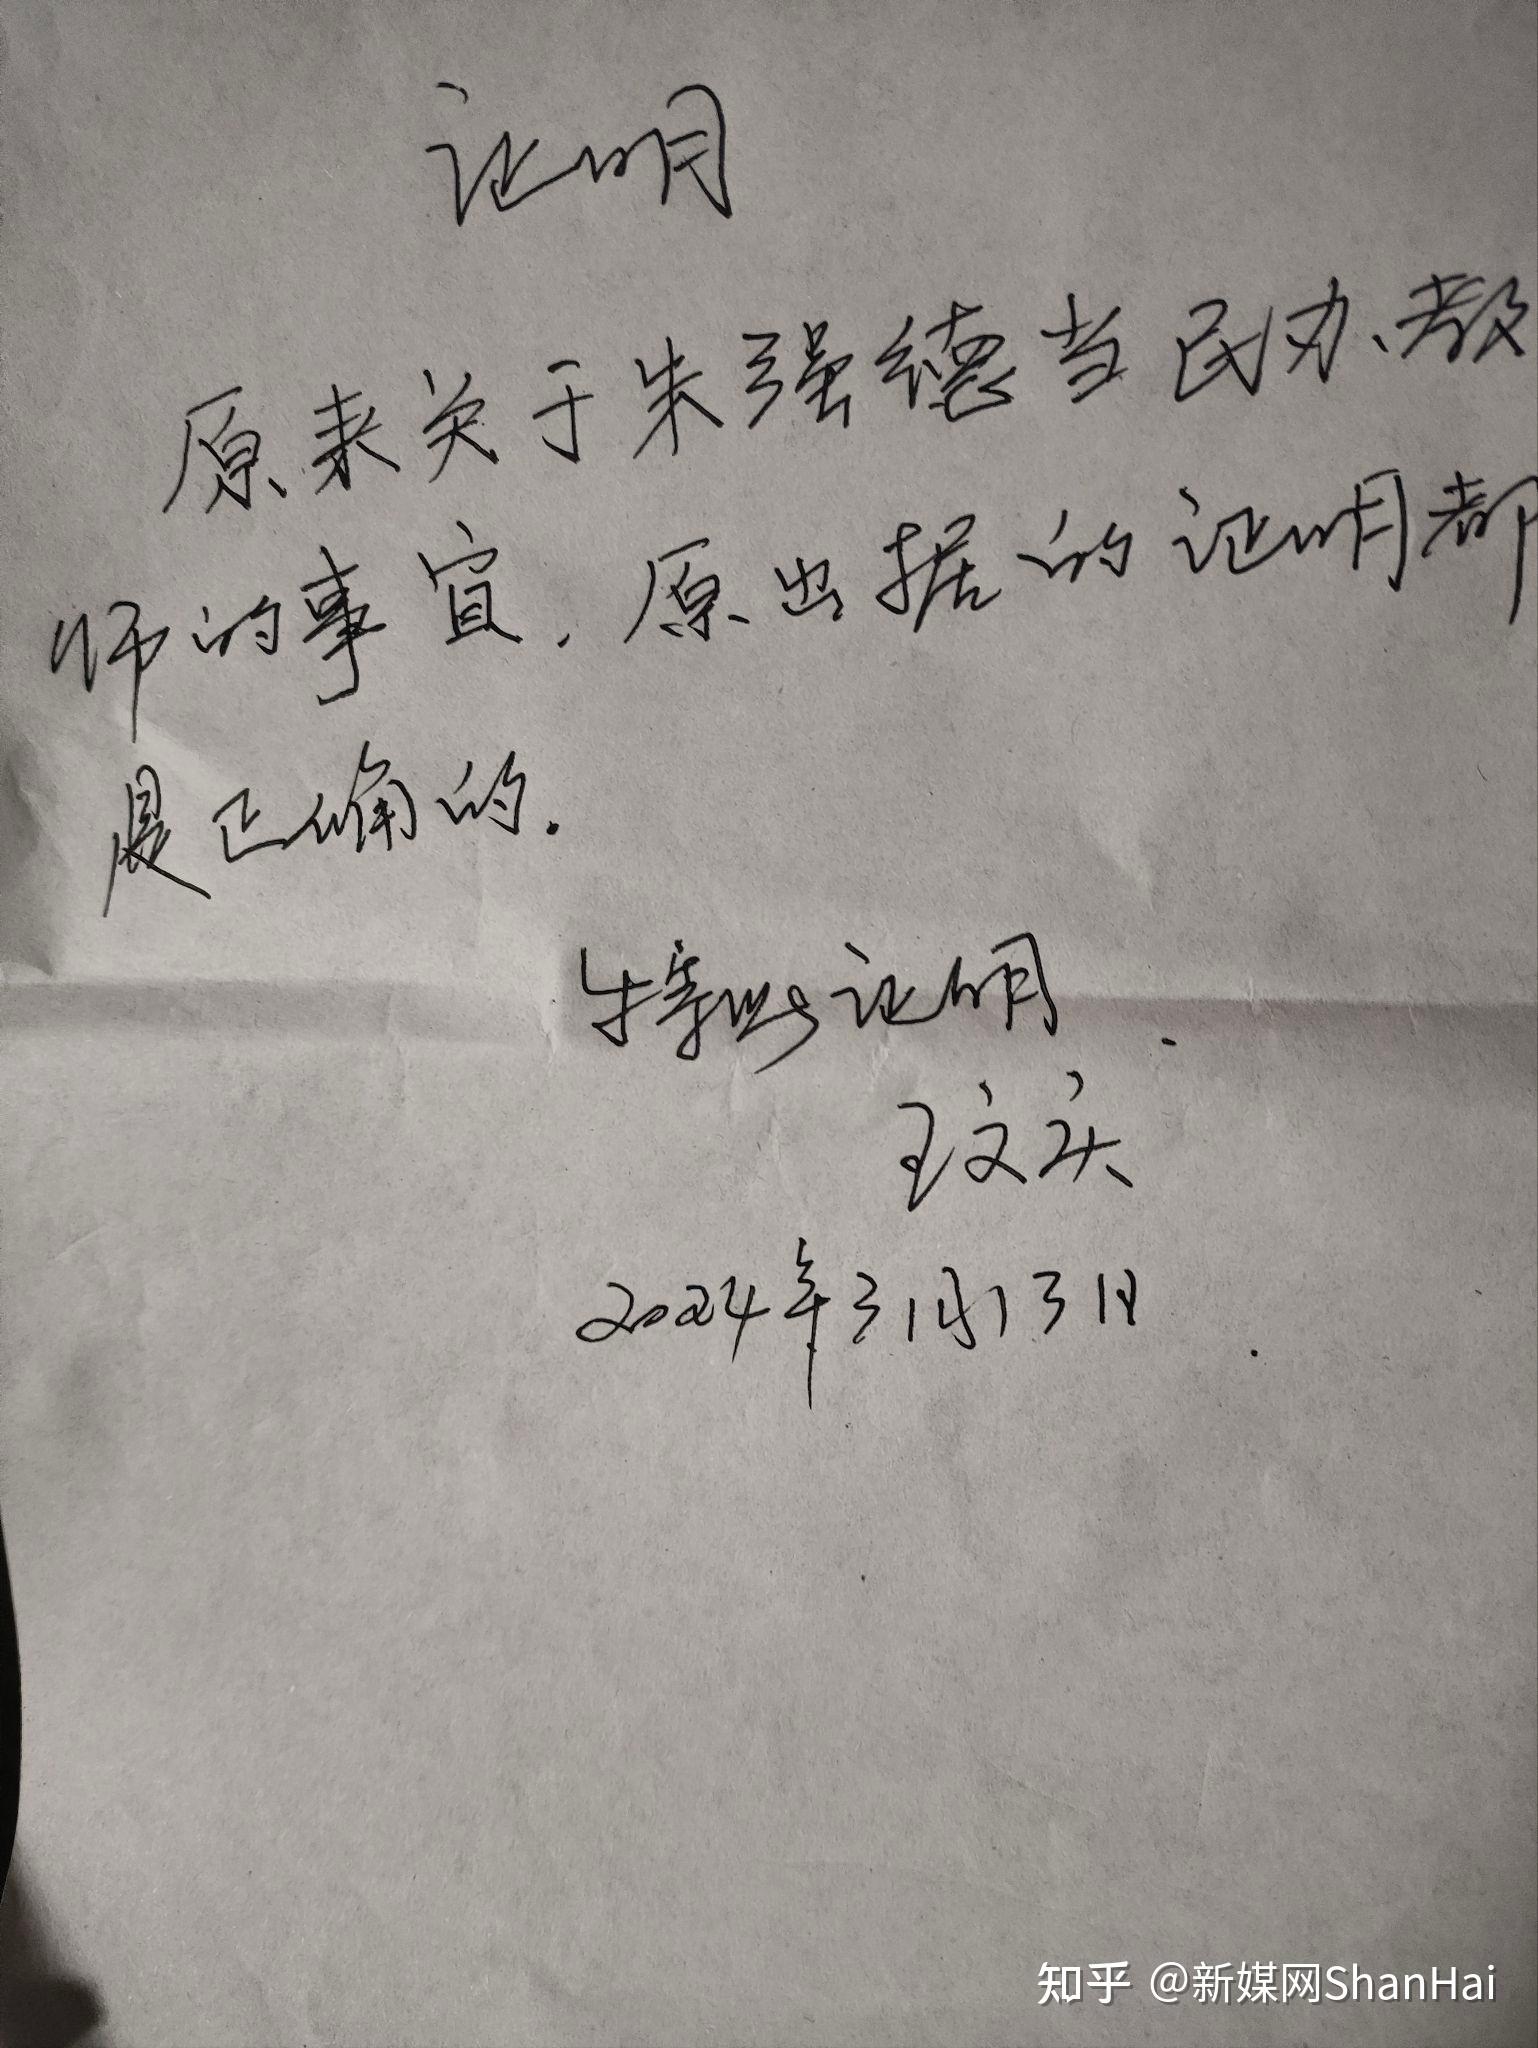 证明
原来关于朱强德当民办教
师的事宜.原出据的证明都
是正确的.
特此证明.
王文庆
2024年3月13日.
知乎 @新媒网ShanHai